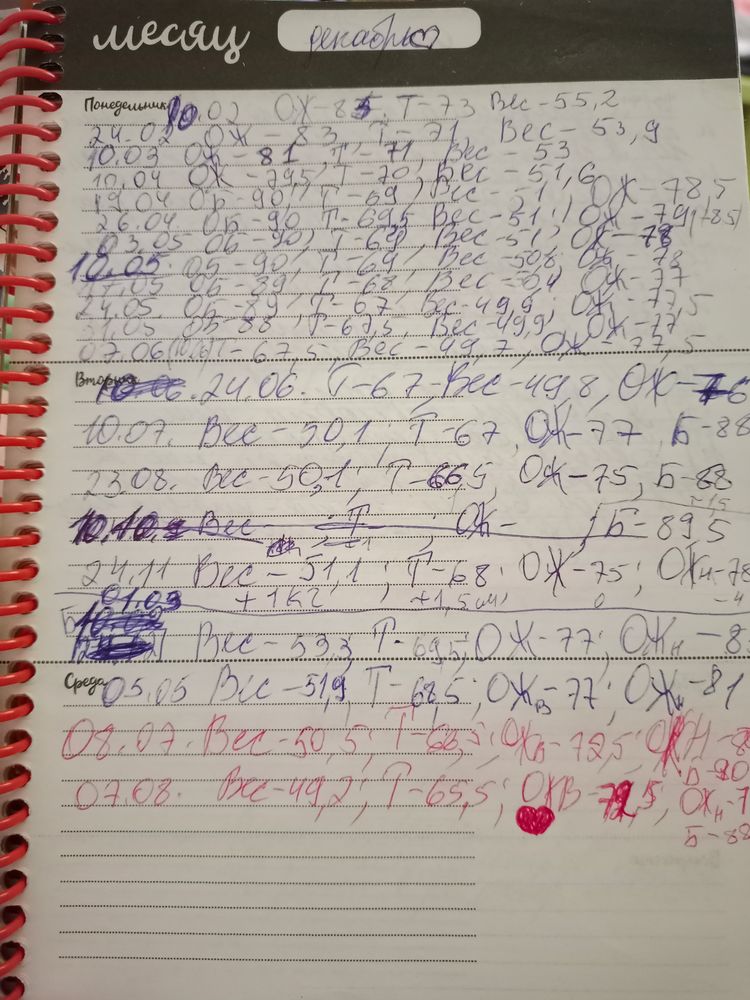 месяц декабрь
Понедельник 10.02 ОЖ-83, Т-73 Вес-55,2
24.02 ОЖ-83 Т-71, Вес-53,9
10.03 ОЖ-81, Т-71, Вес-53
10.04 ОЖ-79,5, Т-70, Вес-51,6
19.04 ОБ-90, Т-69, Вес- ОЖ-78,5
26.04 ОБ-90 Т-69,5 Вес-51, ОЖ-79 (78,5)
03.05 ОБ-90, Т-69, Вес-51, ОЖ-78
10.05 ОБ-90, Т-69, Вес-50,8 ОЖ-78
17.05 ОБ-89, Т-68, Вес- ОЖ-77
24.05 ОБ-89, Т-67, Вес-49,9, ОЖ-77,5
31.05 ОБ-88 Т-67,5, Вес-49,9, ОЖ-77
07.06 (10.6) Т-67,5, Вес-49,7, ОЖ-77,5
Вторник 24.06. Т-67, Вес-49,8, ОЖ-76
10.07. Вес-50,1, Т-67, ОЖ-77, Б-88
23.08. Вес-50,1; Т-66,5; ОЖ-75; Б-88
10.10. Вес- Т- ОЖ- Б-89,5
24.11 Вес-51,1; Т-68; ОЖ-75; ОЖн-78
01.03 +1кг +1,5см 0 -4
Вес-53,3; Т-69,5; ОЖ-77; ОЖн-8
Среда 05.05 Вес-51,9; Т-68,5; ОЖв-77; ОЖн-81
08.07. Вес-50,5; Т-66,5; ОЖв-72,5; ОЖН-8
Б-90
07.08. Вес-49,2; Т-65,5; ОЖВ-72,5; ОЖн-7
Б-88